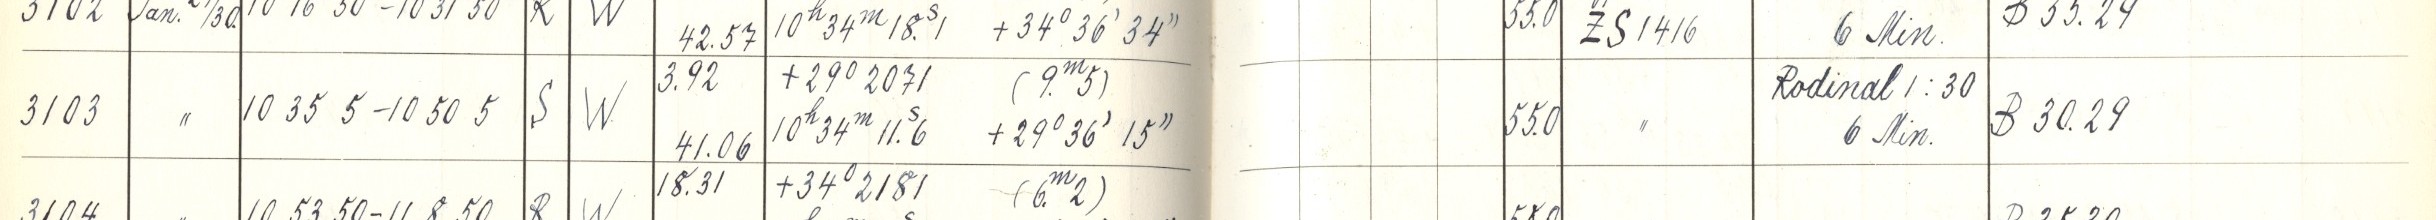 3102 Jan. 29/30. 10 16 50 - 10 31 50 R W 42.57 10h 34m 18.s1 +34° 36' 34" 55.0 ZS 1416 6 Min. B 35.29
3103 " 10 35 5 - 10 50 5 S W 3.92 +29° 2071 (9.m5) 55.0 " Rodinal 1:30 B 30.29
41.06 10h 34m 11.s6 +29° 36' 15" 6 Min.
3104 " 10 53 50 - 11 8 50 R W 18.31 +34° 2181 (6.m2)